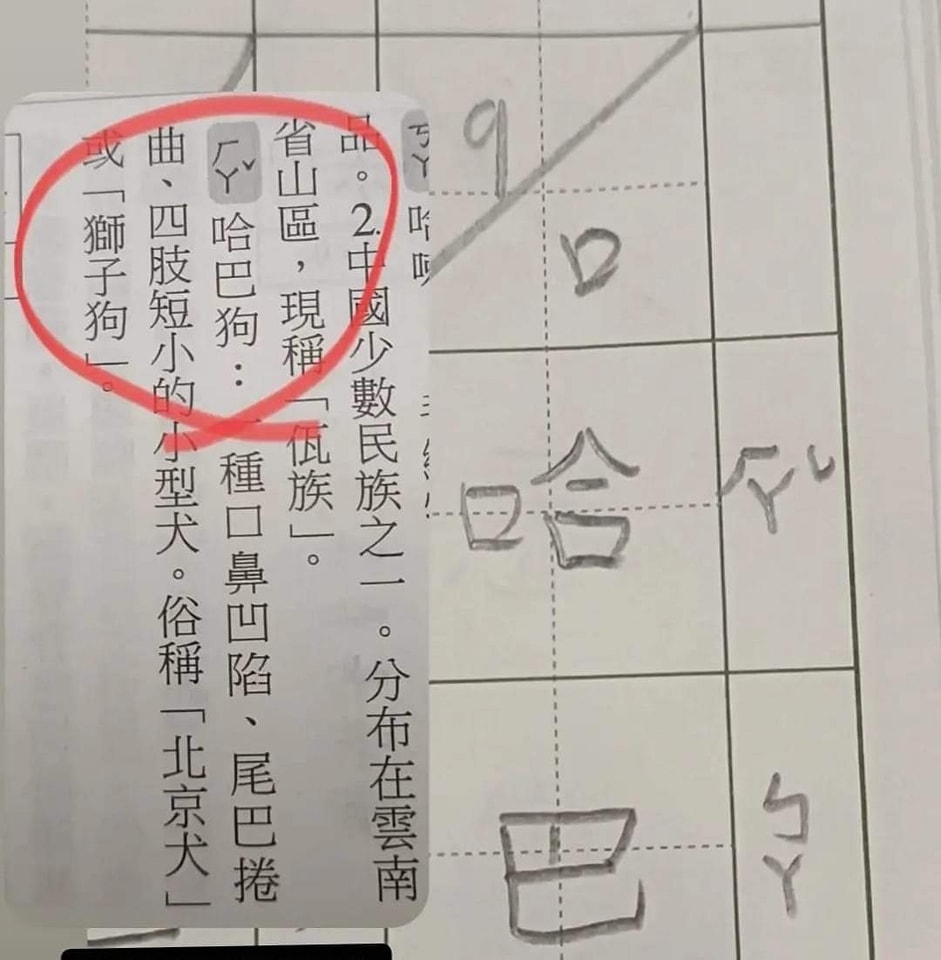 品。2.中國少數民族之一。分布在雲南
省山區,現稱「佤族」。
ㄏㄚˇ 哈巴狗:一種口鼻凹陷、尾巴捲
曲、四肢短小的小型犬。俗稱「北京犬」
或「獅子狗」。
9
口
哈 ㄏㄚˇ
巴 ㄅㄚ